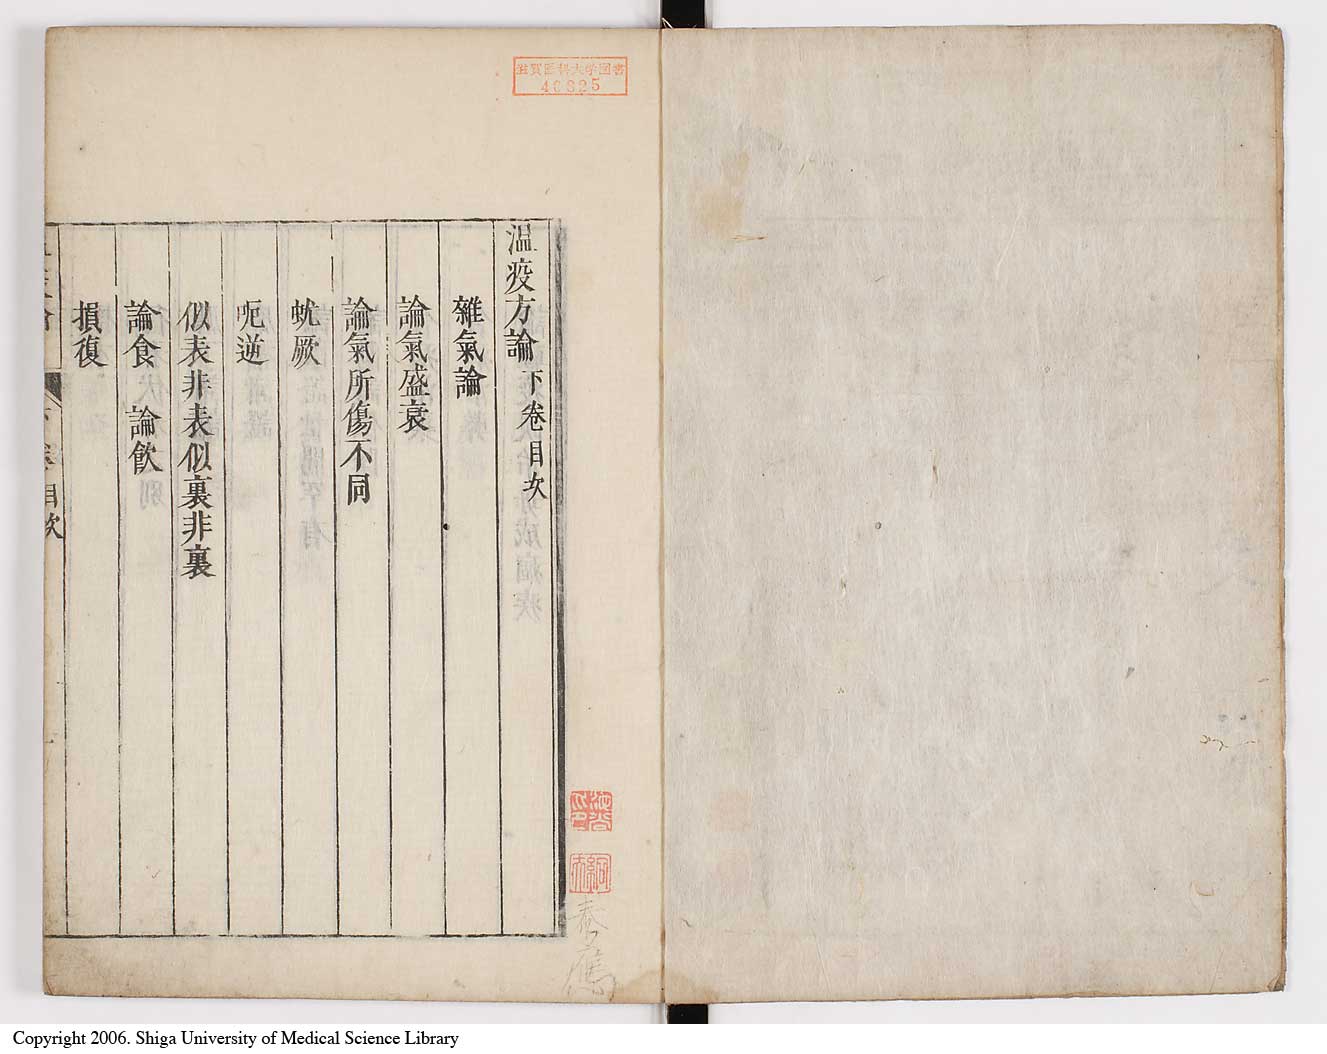 滋賀医科大学図書
40825
温疫方論 下卷目次
雜氣論
論氣盛衰
論氣所傷不同
蚘厥
呃逆
似表非表似裏非裏
論食 論飲
損復
下卷目次
Copyright 2006. Shiga University of Medical Science Library